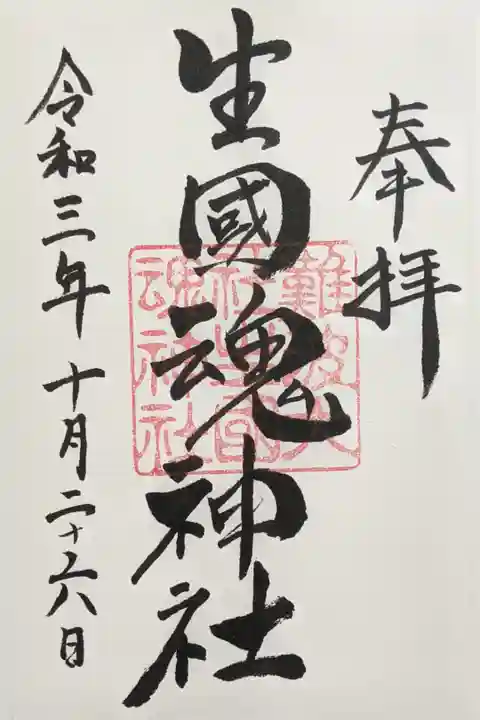 奉拝
生國魂神社
難波大
社生國
魂神社
令和三年十月二十六日